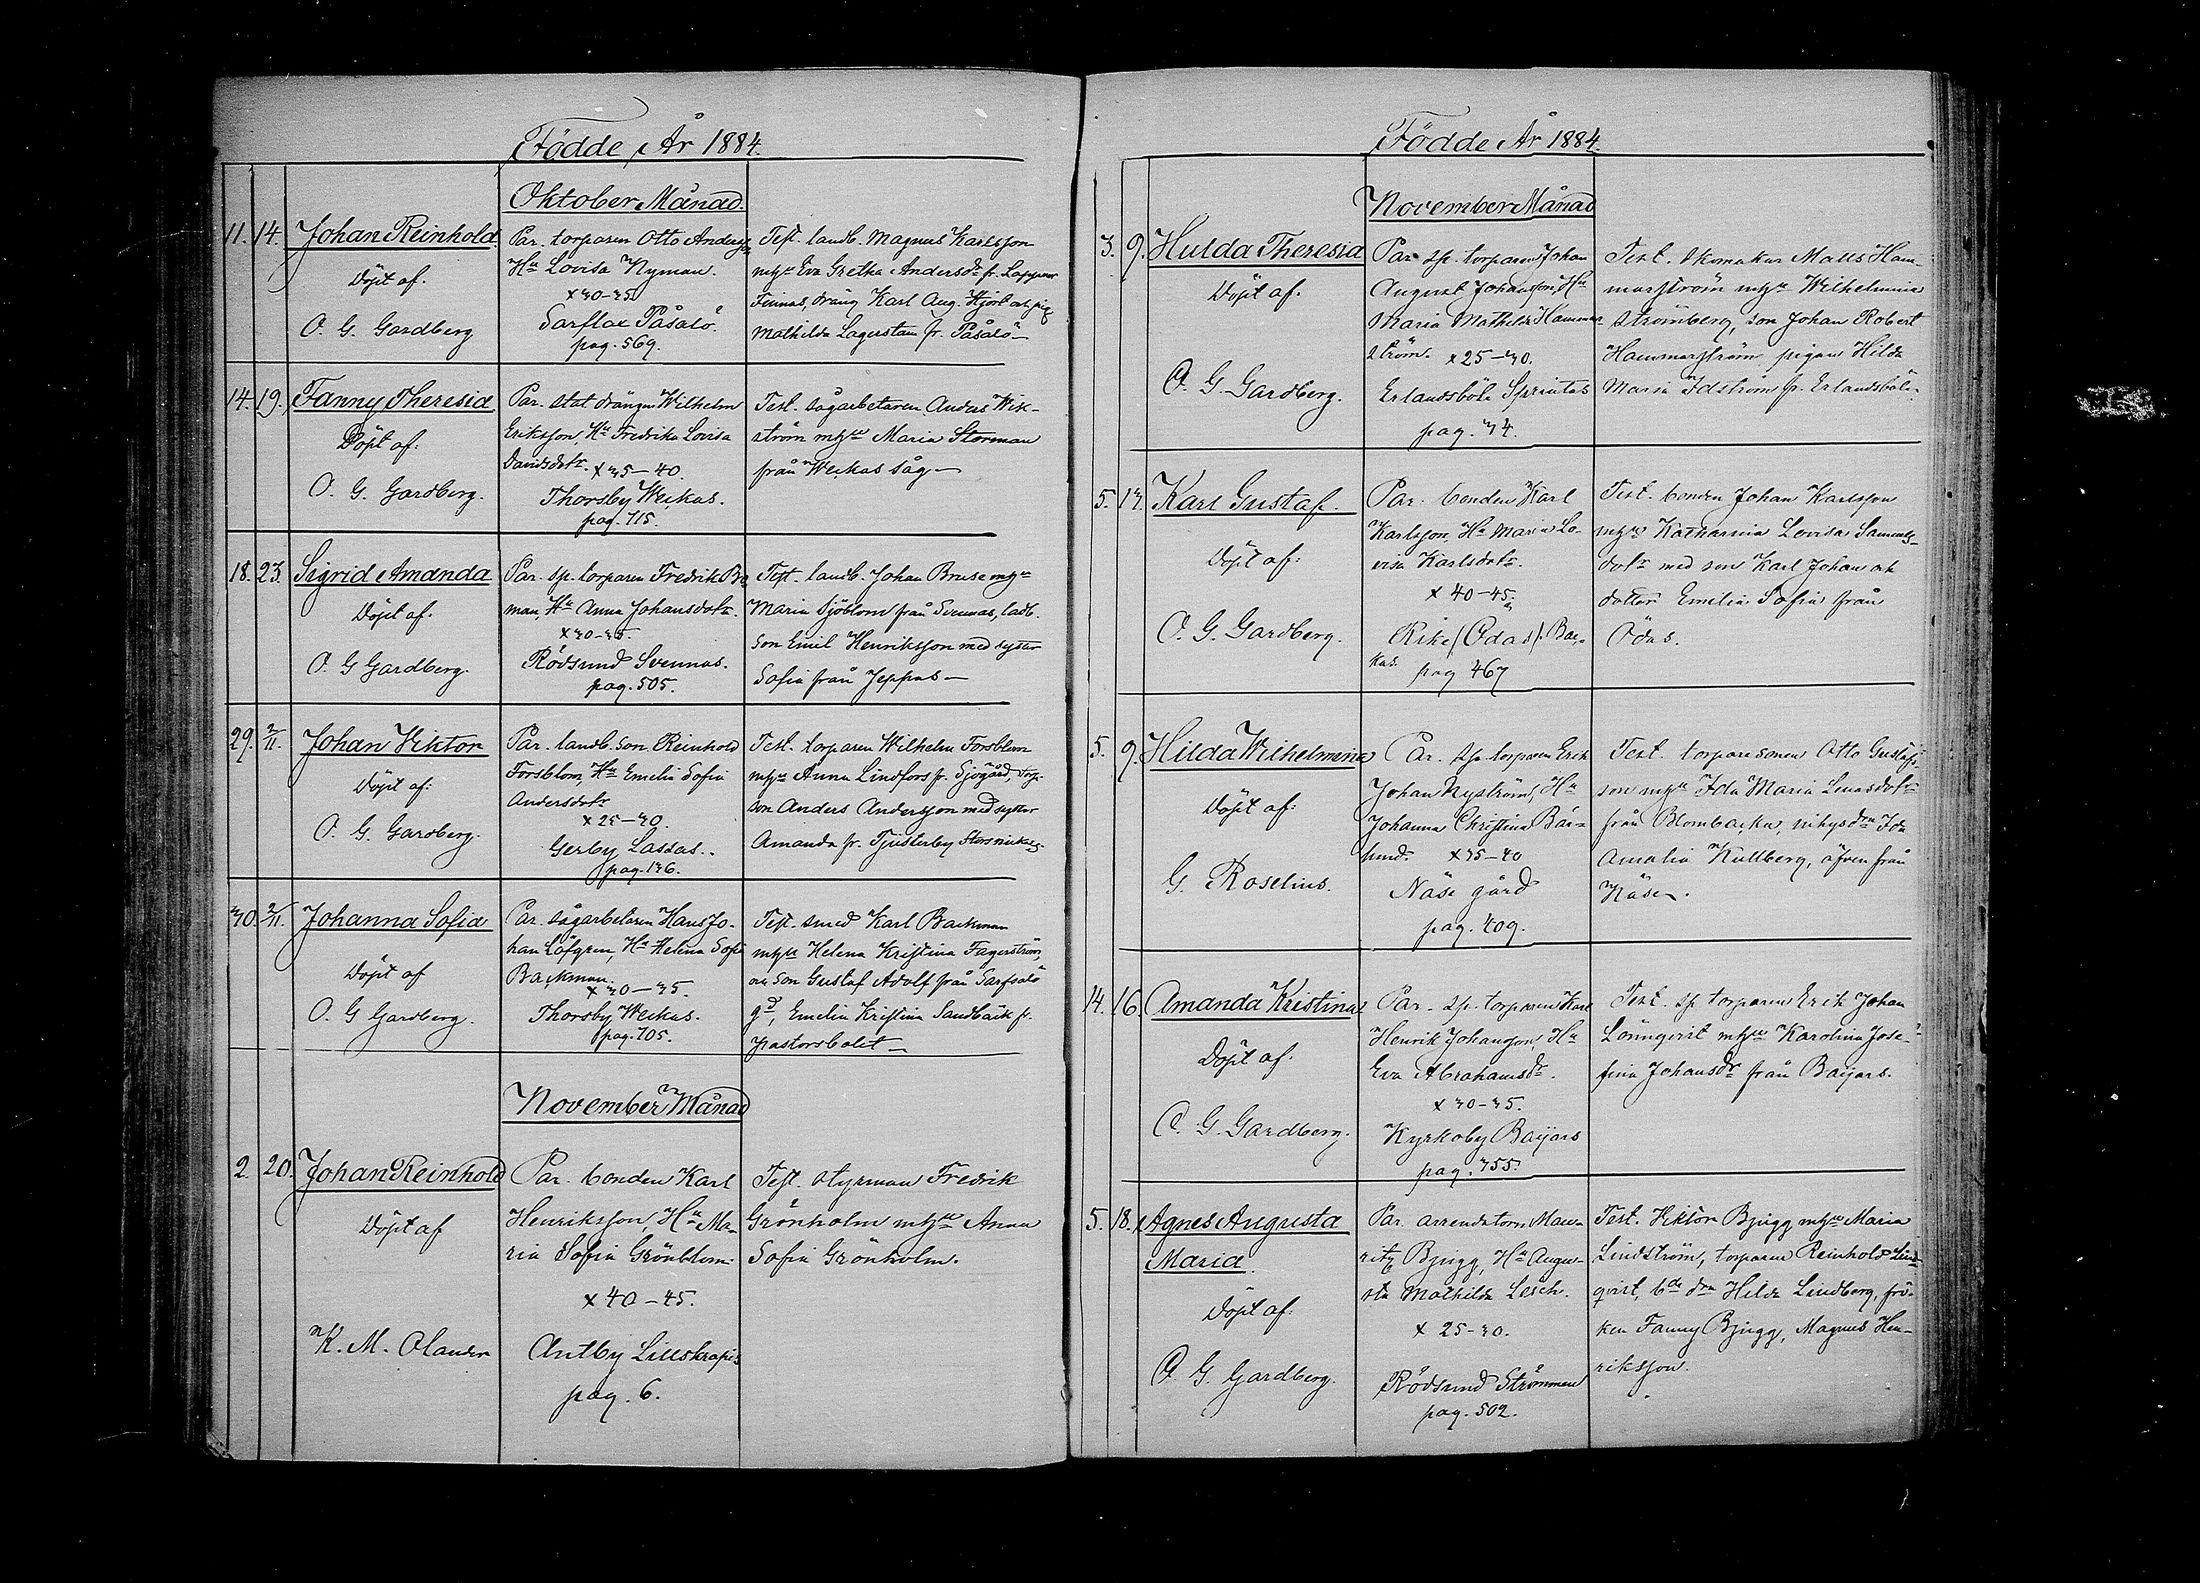 Födde År 1884.
Oktober Månad.
11. 14. Johan Reinhold
Döpt af.
O. G. Gardberg
Par. torparen Otto Anderss
Hu Lovisa Nyman.
x 30-35
Sarflax Påsalö.
pag. 569.
Test. landb. Magnus Karlsson
mhu Eva Gretha Andersdr fr. Lappnor
Finnas, dräng Karl Aug. Hjort och pig
Mathilda Lagerstam fr. Påsalö
14. 19. Fanny Theresia
Döpt af:
O. G. Gardberg.
Par. statdrängen Wilhelm
Eriksson, Hu Fredrika Lovisa
Davidsdotr. x 35-40.
Thorsby Weckas.
pag. 715.
Test. sågarbetaren Anders Wik-
ström mhu Maria Storman
från Weckas såg
18. 23. Sigrid Amanda
Döpt af.
O. G Gardberg.
Par. sp. torparen Fredrik Bo
man, Hu Anna Johansdotr.
x 30-35.
Rödsund Svennas.
pag. 505.
Test. landb. Johan Bruse mhu
Maria Sjöblom från Svennas, ladb.
son Emil Henriksson med syster
Sofia från Jeppas
29. 2/11. Johan Viktor
Döpt af:
O. G. Gardberg.
Par. landb. son Reinhold
Forsblom, Hu Emelie Sofia
Andersdotr
x 25-30.
Gerby Lassas.
pag. 136.
Test. torparen Wilhelm Forsblom
mhu Anna Lindfors fr. Sjögård, torp.
son Anders Andersson med syster
Amanda fr. Tjusterby
30. 2/11. Johanna Sofia
Döpt af
O. G Gardberg.
Par. sågarbetaren Hans Jo-
han Löfgren, Hu Helena Sofia
Backman.
x 30-35.
Thorsby Weckas.
pag. 705.
Test. smed Karl Backman
mhu Helena Kristina Fagerström,
son Gustaf Adolf från Sarfsalö
gd, Emelia Kristina Sandbäck fr.
pastorsbolet
November Månad
2. 20. Johan Reinhold
Döpt af
K. M. Olander
Par. bonden Karl
Henriksson, Hu Ma-
ria Sofia Grönblom
x 40-45.
Antby Lillskrapis
pag. 6.
Test. styrman Fredrik
Grönholm mhu Anna
Sofia Grönholm.
Födde År 1884.
November Månad
3. 9. Hulda Theresia
Döpt af.
O. G. Gardberg.
Par sp. torparen Johan
August Johansson, Hu
Maria Mathilda Hammar
ström. x 25-30.
Erlandsböle Sprintas
pag. 34.
Test. skomakar Matts Ham-
marström mhu Wilhelmina
Strömberg, son Johan Robert
Hammarström pigan Hilda
Maria Idström fr. Erlandsböle.
5. 13. Karl Gustaf.
Döpt af:
O. G. Gardberg.
Par. bonden Karl
Karlsson, Hu Maria Lo-
visa Karlsdotr.
x 40-45,
Rike (Ödas). Bac-
kas.
pag 467
Test. bonden Johan Karlsson
mhu Katharina Lovisa Samuels-
dotr med son Karl Johan och
dotter Emelia Sofia från
Ödas.
5. 9. Hilda Wilhelmina
Döpt af:
G. Roselius.
Par. sp. torparen Erik
Johan Nyström, Hu
Johanna Christina Bär-
lund. x 35-40
Näse gård
pag. 409.
Test. torparesonen Otto Gustafs-
son mhu Ida Maria Linusdotr
från Blombacka, Ida
Amalia Kullberg, äfven från
Näse.
14. 16. Amanda Kristina
Döpt af.
O. G. Gardberg.
Par. sp. torparen Karl
Henrik Johansson, Hu
Eva Abrahamsdr.
x 30-35.
Kyrkoby Baijars
pag. 355.
Test. sp torparen Erik Johan
Lönnqvist mhu Karolina Jose-
fina Johansdr från Baijars.
5. 18. Agnes Augusta
Maria.
Döpt af:
O. G. Gardberg.
Par. arrendatorn Mau-
ritz Bjugg, Hu Augu-
sta Mathilda Lesch.
x 25-30.
Rödsund Strömmen
pag. 502.
Test. Viktor Bjugg mhu Maria
Lindström, torparen Reinhold Lind
qvist, bde dra Hilda Lindberg, frö-
ken Fanny Bjugg, Magnus Hen-
riksson.